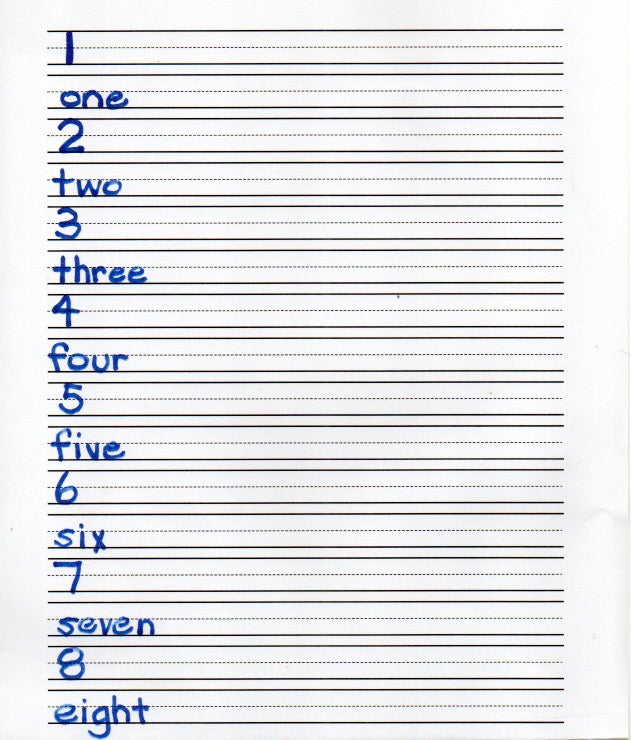 1
one
2
two
3
three
4
four
5
five
6
six
7
seven
8
eight